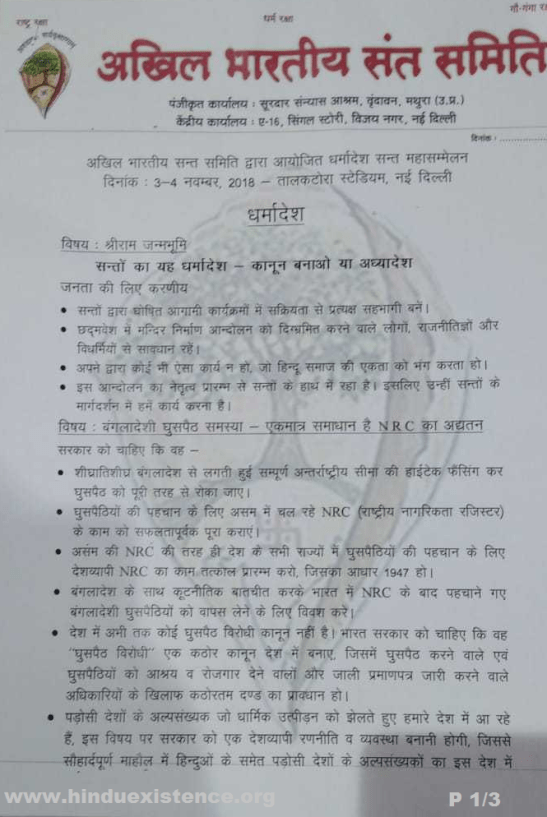 राष्ट्र रक्षा
धर्म रक्षा
गौ-गंगा
अखिल भारतीय संत समिति
पंजीकृत कार्यालय : सूरदार संन्यास आश्रम, वृंदावन, मथुरा (उ.प्र.)
केंद्रीय कार्यालय : ए-16, सिंगल स्टोरी, विजय नगर, नई दिल्ली
दिनांक : ..............
अखिल भारतीय सन्त समिति द्वारा आयोजित धर्मादेश सन्त महासम्मेलन
दिनांक : 3-4 नवम्बर, 2018 – तालकटोरा स्टेडियम, नई दिल्ली
धर्मादेश
विषय : श्रीराम जन्मभूमि
सन्तों का यह धर्मादेश – कानून बनाओ या अध्यादेश
जनता की लिए करणीय
• सन्तों द्वारा घोषित आगानी कार्यक्रमों में सक्रियता से प्रत्यक्ष सहभागी बनें।
• छद्मवेश में मन्दिर निर्माण आन्दोलन को दिग्भ्रमित करने वाले लोगों, राजनीतिज्ञों और
विधर्मियों से सावधान रहें।
• अपने द्वारा कोई भी ऐसा कार्य न हो, जो हिन्दू समाज की एकता को भंग करता हो।
• इस आन्दोलन का नेतृत्व प्रारम्भ से सन्तों के हाथ में रहा है। इसलिए उन्हीं सन्तों के
मार्गदर्शन में हमें कार्य करना है।
विषय : बंगलादेशी घुसपैठ समस्या – एकमात्र समाधान है NRC का अद्यतन
सरकार को चाहिए कि वह –
• शीघ्रातिशीघ्र बंगलादेश से लगती हुई सम्पूर्ण अन्तर्राष्ट्रीय सीमा की हाईटेक फैंसिंग कर
घुसपैठ को पूरी तरह से रोका जाए।
• घुसपैठियों की पहचान के लिए असम में चल रहे NRC (राष्ट्रीय नागरिकता रजिस्टर)
के काम को सफलतापूर्वक पूरा कराएं।
• असंम की NRC की तरह ही देश के सभी राज्यों में घुसपैठियों की पहचान के लिए
देशव्यापी NRC का काम तत्काल प्रारम्भ करो, जिसका आधार 1947 हो।
• बंगलादेश के साथ कूटनीतिक बातचीत करके भारत में NRC के बाद पहचाने गए
बंगलादेशी घुसपैठियों को वापस लेने के लिए विवश करें।
• देश में अभी तक कोई घुसपैठ विरोधी कानून नहीं है। भारत सरकार को चाहिए कि वह
"घुसपैठ विरोधी" एक कठोर कानून देश में बनाए, जिसमें घुसपैठ करने वाले एवं
घुसपैठियों को आश्रय व रोजगार देने वालों और जाली प्रमाणपत्र जारी करने वाले
अधिकारियों के खिलाफ कठोरतम दण्ड का प्रावधान हो।
• पड़ोसी देशों के अल्पसंख्यक जो धार्मिक उत्पीड़न को झेलते हुए हमारे देश में आ रहे
हैं, इस विषय पर सरकार को एक देशव्यापी रणनीति व व्यवस्था बनानी होगी, जिससे
सौहार्दपूर्ण माहौल में हिन्दुओं के समेत पड़ोसी देशों के अल्पसंख्यकों का इस देश में
www.hinduexistence.org
P 1/3